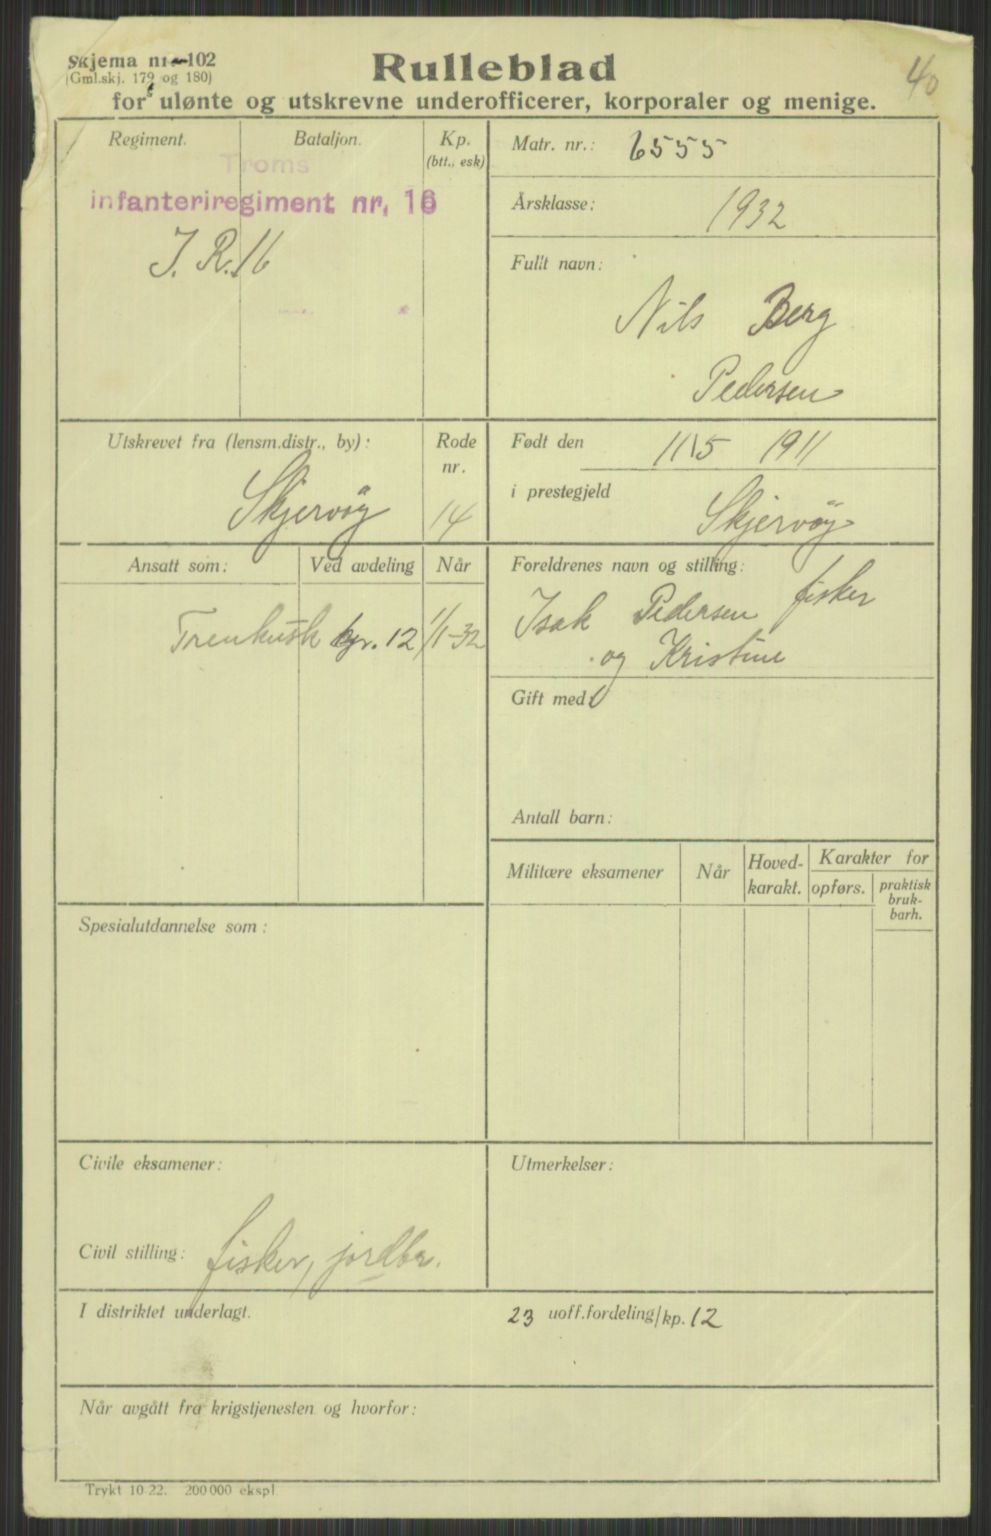 Skjema nr. 102
(Gml.skj. 179 og 180)
Rulleblad
40
for ulønte og utskrevne underofficerer, korporaler og menige.
Regiment. Bataljon. Kp.
(btt., esk)
Troms
infanteriregiment nr. 16
I. R. 16
Matr. nr.: 6555
Årsklasse: 1932
Fullt navn:
Nils Berg
Pedersen
Utskrevet fra (lensm.distr., by): Rode
nr.
Skjervöy 14
Født den 11\5 1911
i prestegjeld Skjervöy
Ansatt som: Ved avdeling Når
Trenkusk kp. 12 1/1-32
Foreldrenes navn og stilling:
Isak Pedersen fisker
og Kristine
Gift med
Antall barn:
Militære eksamener Når Hoved-
karakt. Karakter for
opførs. praktisk
bruk-
barh.
Spesialutdannelse som:
Civile eksamener:
Utmerkelser:
Civil stilling: fisker, jordbr.
I distriktet underlagt. 23 uoff.fordeling/kp. 12
Når avgått fra krigstjenesten og hvorfor:
Trykt 10 22. 200 000 ekspl.